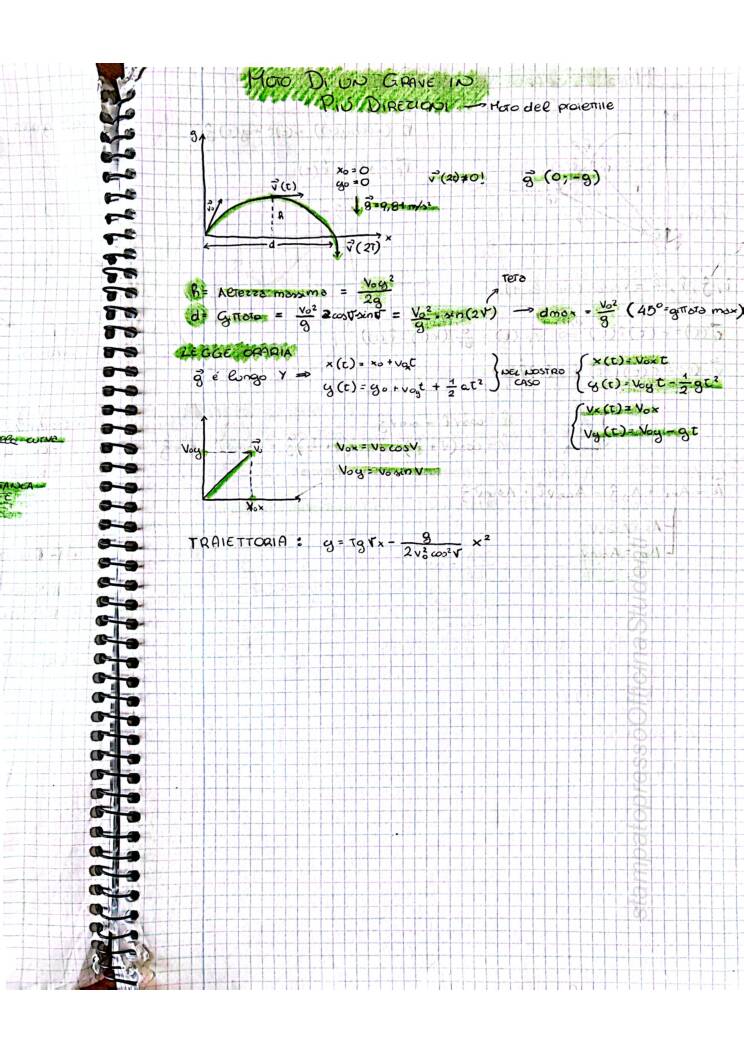 MOTO DI UN GRAVE IN
PIÙ DIREZIONI → Moto del proiettile
y
x0 = 0
y0 = 0
v⃗(t)
v⃗(2t) ≠ 0!
g⃗ (0; -g)
v⃗0
g⃗ = 9,81 m/s²
h
d
x
v⃗(2T)
h = Altezza massima = V0y² / 2g
Teta
d = Gittata = V0²/g 2cosϑsinϑ = V0²/g · sin(2ϑ) → dmax = V0²/g (45° = gittata max)
LEGGE ORARIA
g⃗ è lungo Y ⇒
x(t) = x0 + v0t
y(t) = y0 + v0yt + 1/2 at²
NEL NOSTRO
CASO
x(t) = V0x t
y(t) = V0y t - 1/2 gt²
Vx(t) = V0x
Vy(t) = V0y - gt
V0y
v⃗0
V0x = V0 cosϑ
V0y = V0 sinϑ
V0x
TRAIETTORIA : y = Tgϑx - g / 2v0² cos²ϑ x²
curva
stampatopressoOfficinaStudenti